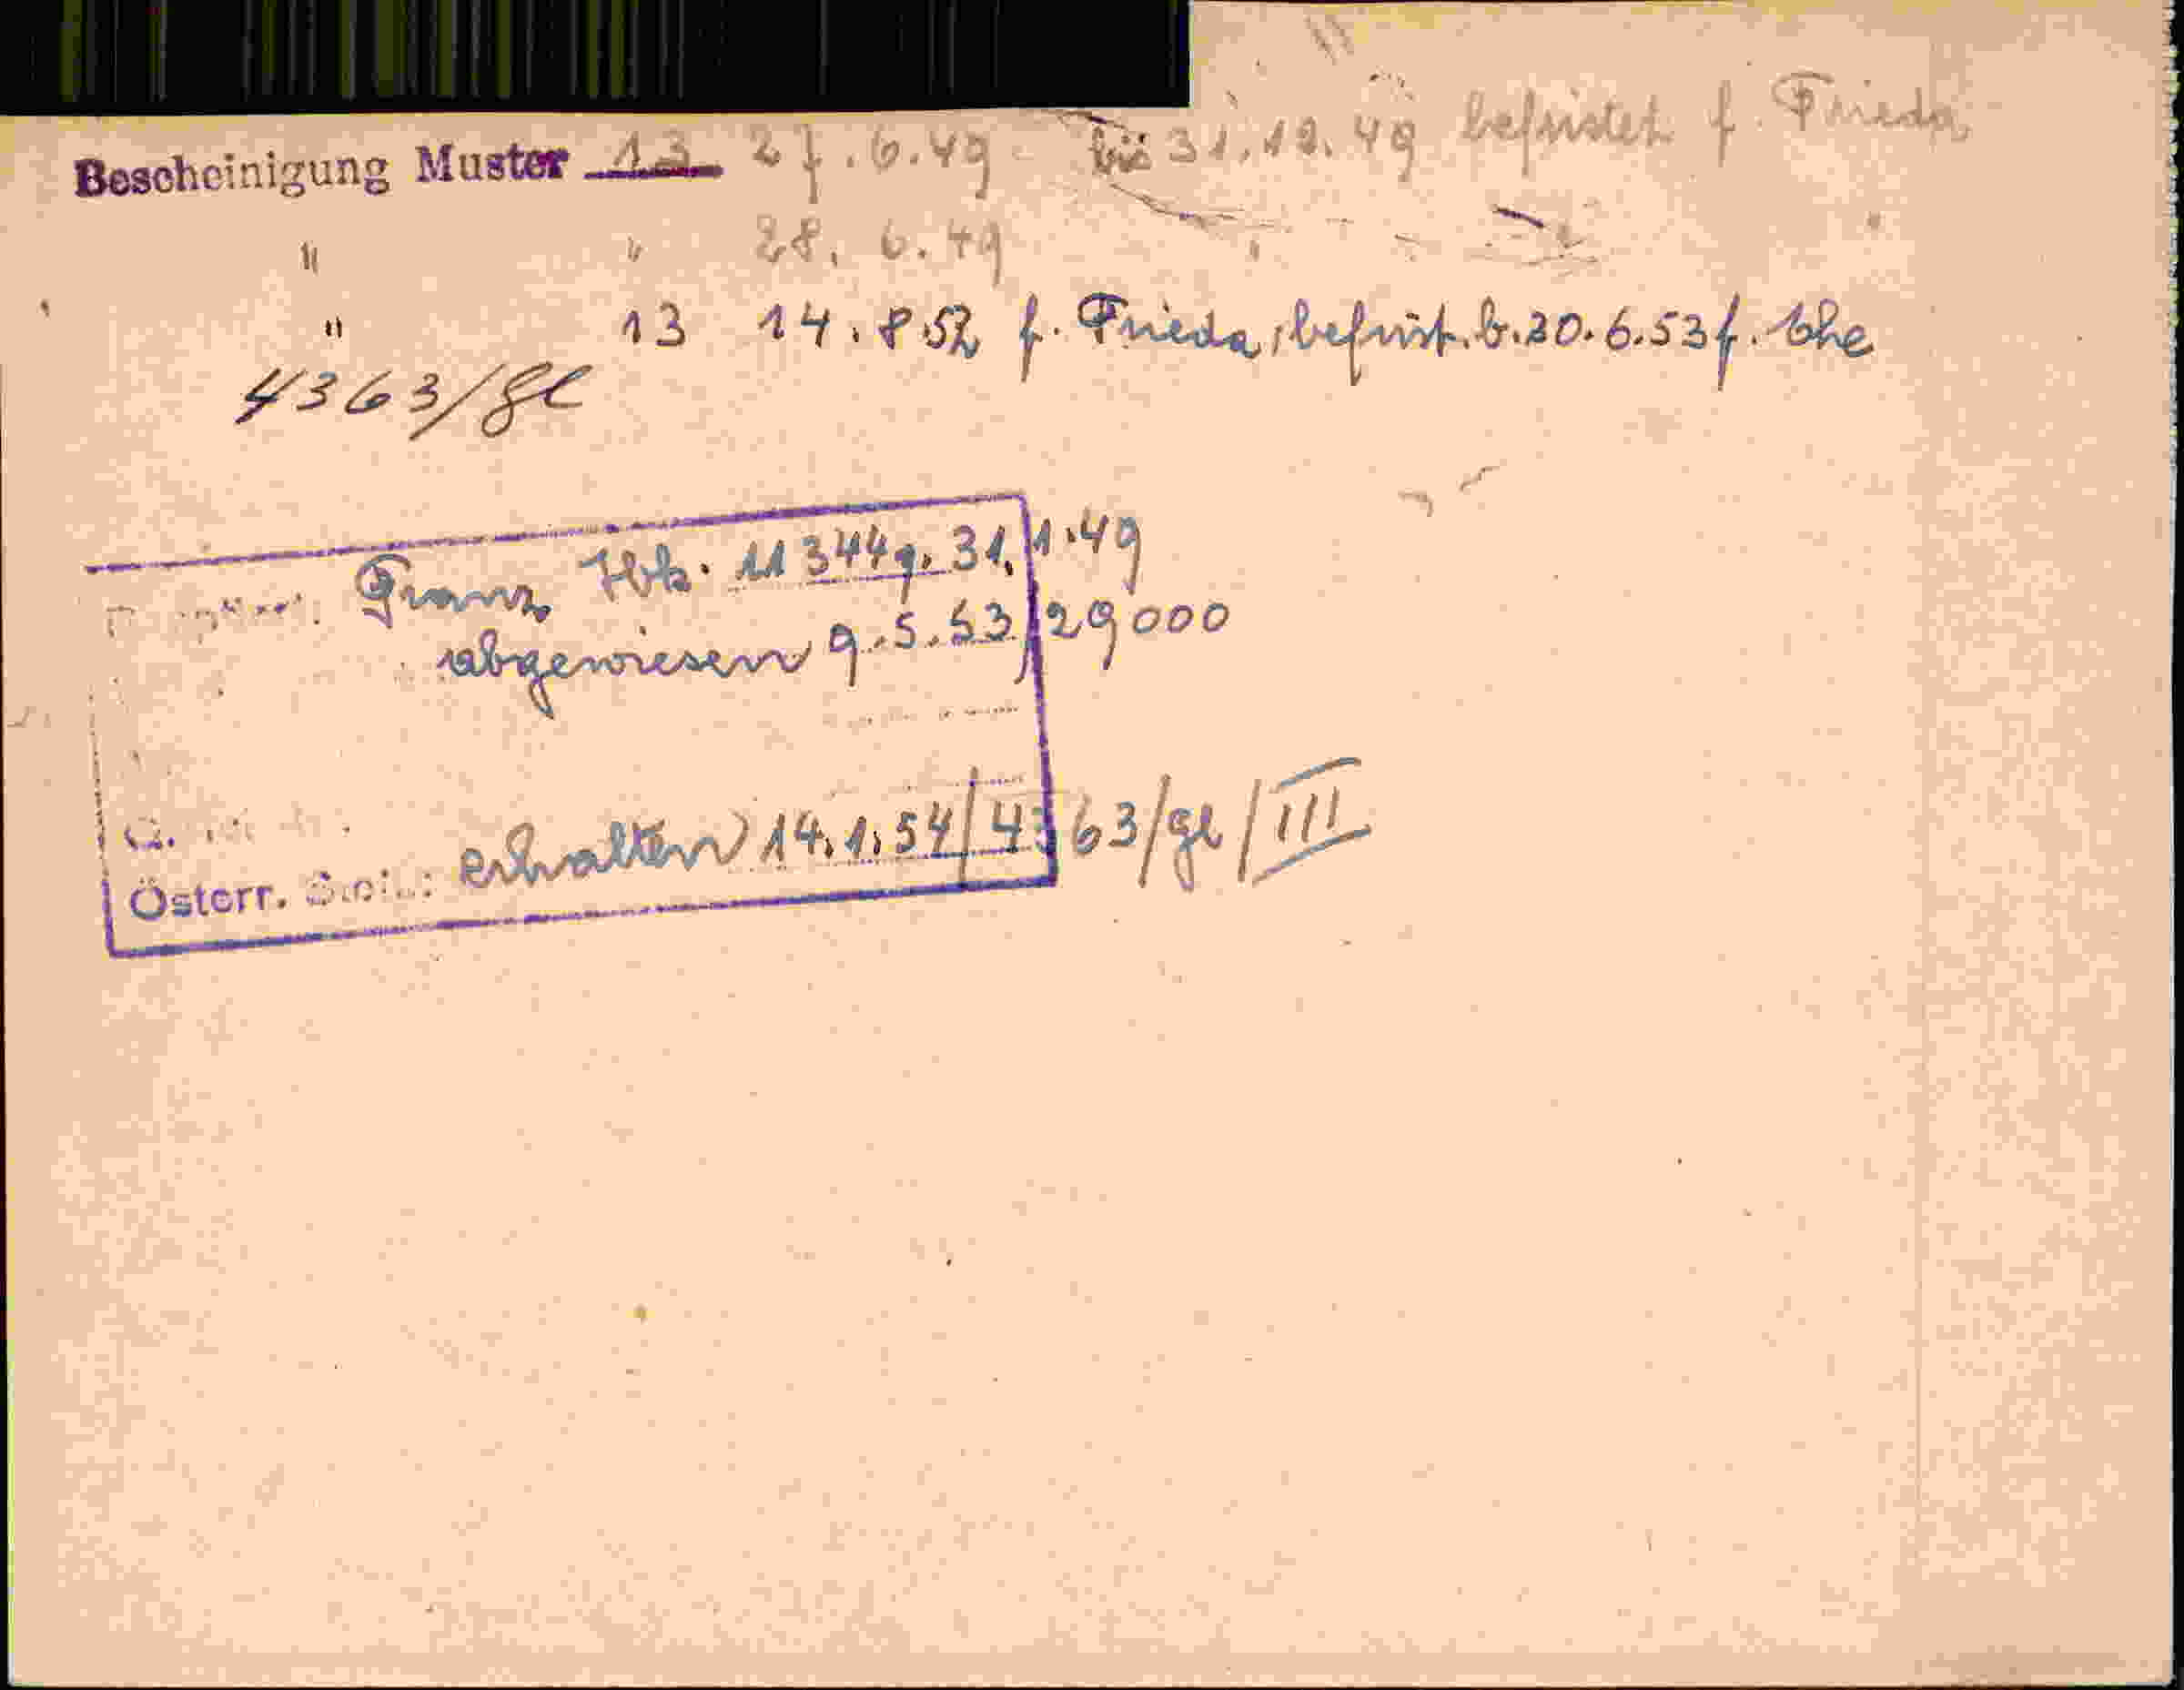 Bescheinigung Muster 13 27.6.49 bis 31.12.49 befristet f. Frieda
" " 28.6.49 " - -
" 13 14.8.52 f. Frieda, befrist. b. 30.6.53 f. Ehe
4363/gl
Franz 11344 g. 31.1.49
abgewiesen 9.5.53/29000
Österr. erhalten 14.1.54/4363/gl/III